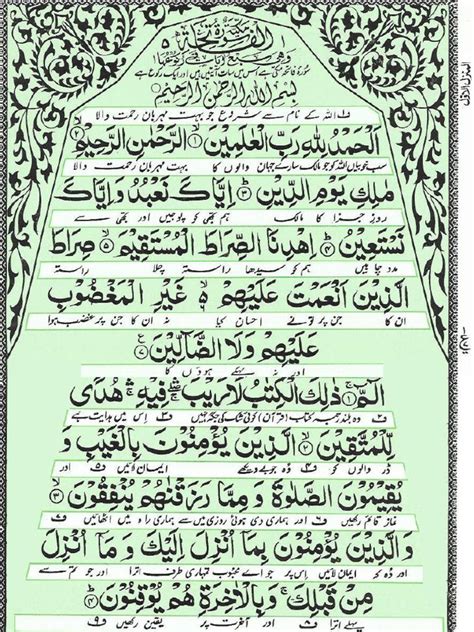 سورة الفاتحة
سورۃ فاتحہ مکی ہے اس میں سات آیتیں ہیں اور ایک رکوع ہے
بسم الله الرحمن الرحيم
الله کے نام سے شروع جو بہت مہربان رحمت والا
اَلْحَمْدُ لِلّٰهِ رَبِّ الْعٰلَمِيْنَ ۙ﴿۱﴾ الرَّحْمٰنِ الرَّحِيْمِ ۙ﴿۲﴾
سب خوبیاں اللہ کو جو مالک سارے جہان والوں کا بہت مہربان رحمت والا
مٰلِكِ يَوْمِ الدِّيْنِ ﴿۳﴾ اِيَّاكَ نَعْبُدُ وَاِيَّاكَ
روزِ جزا کا مالک ہم تجھی کو پوجیں اور تجھی سے
نَسْتَعِيْنُ ﴿۴﴾ اِهْدِنَا الصِّرَاطَ الْمُسْتَقِيْمَ ﴿۵﴾ صِرَاطَ
مدد چاہیں ہم کو سیدھا راستہ چلا راستہ
الَّذِيْنَ اَنْعَمْتَ عَلَيْهِمْ ﴿۶﴾ غَيْرِ الْمَغْضُوْبِ
ان کا جن پر تو نے احسان کیا نہ ان کا جن پر غضب ہوا
عَلَيْهِمْ وَلَا الضَّآلِّيْنَ ﴿۷﴾
اور نہ بہکے ہوؤں کا
الٓمّٓ ﴿۱﴾ ذٰلِكَ الْكِتٰبُ لَا رَيْبَ فِيْهِ هُدًى
وہ بلند رتبہ کتاب (قرآن) کوئی شک کی جگہ نہیں اس میں ہدایت ہے
لِّلْمُتَّقِيْنَ ﴿۲﴾ الَّذِيْنَ يُؤْمِنُوْنَ بِالْغَيْبِ وَ
ڈر والوں کو وہ جو بے دیکھے ایمان لائیں اور
يُقِيْمُوْنَ الصَّلٰوةَ وَمِمَّا رَزَقْنٰهُمْ يُنْفِقُوْنَ ﴿۳﴾
نماز قائم رکھیں اور ہماری دی ہوئی روزی میں سے ہماری راہ میں اٹھائیں
وَالَّذِيْنَ يُؤْمِنُوْنَ بِمَآ اُنْزِلَ اِلَيْكَ وَمَآ اُنْزِلَ
اور وہ کہ ایمان لائیں اس پر جو اے محبوب تمہاری طرف اترا اور جو تم سے
مِنْ قَبْلِكَ وَبِالْاٰخِرَةِ هُمْ يُوْقِنُوْنَ ﴿۴﴾
پہلے اترا اور آخرت پر یقین رکھیں